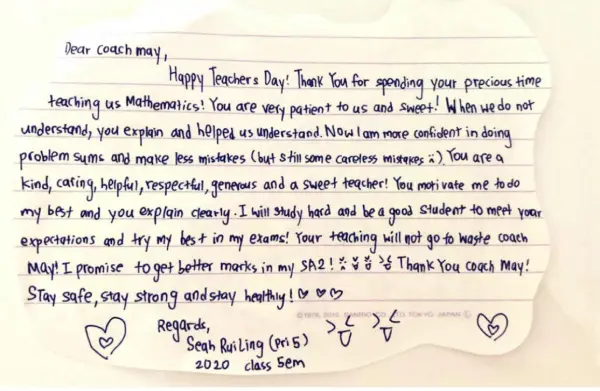 Dear coach may,
Happy Teachers Day! Thank You for spending your precious time
teaching us Mathematics! You are very patient to us and sweet! When we do not
understand, you explain and helped us understand. Now I am more confident in doing
problem sums and make less mistakes (but still some careless mistakes :) You are a
kind, caring, helpful, respectful, generous and a sweet teacher! You motivate me to do
my best and you explain clearly. I will study hard and be a good student to meet your
expectations and try my best in my exams! Your teaching will not go to waste coach
May! I promise to get better marks in my SA2! Thank You Coach May!
Stay safe, stay strong and stay healthly! ♡♡♡
©1976, 2015 SANRIO CO., LTD. TOKYO, JAPAN
Regards,
Seah Rui Ling (Pri 5)
2020 class 5em